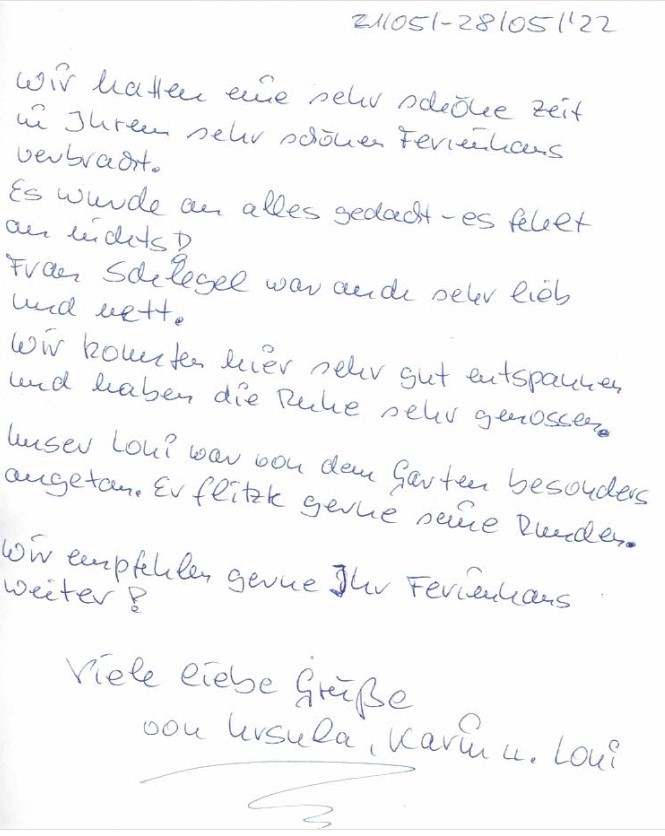 21/05/-28/05/'22
Wir hatten eine sehr schöne Zeit
in Ihrem sehr schönen Ferienhaus
verbracht.
Es wurde an alles gedacht - es fehlt
an nichts!
Frau Schlegel war auch sehr lieb
und nett.
Wir konnten hier sehr gut entspannen
und haben die Ruhe sehr genossen.
Unser Loui war von dem Garten besonders
angetan. Er flitzt gerne seine Runden.
Wir empfehlen gerne Ihr Ferienhaus
weiter!
Viele liebe Grüße
von Ursula, Karin u. Loui